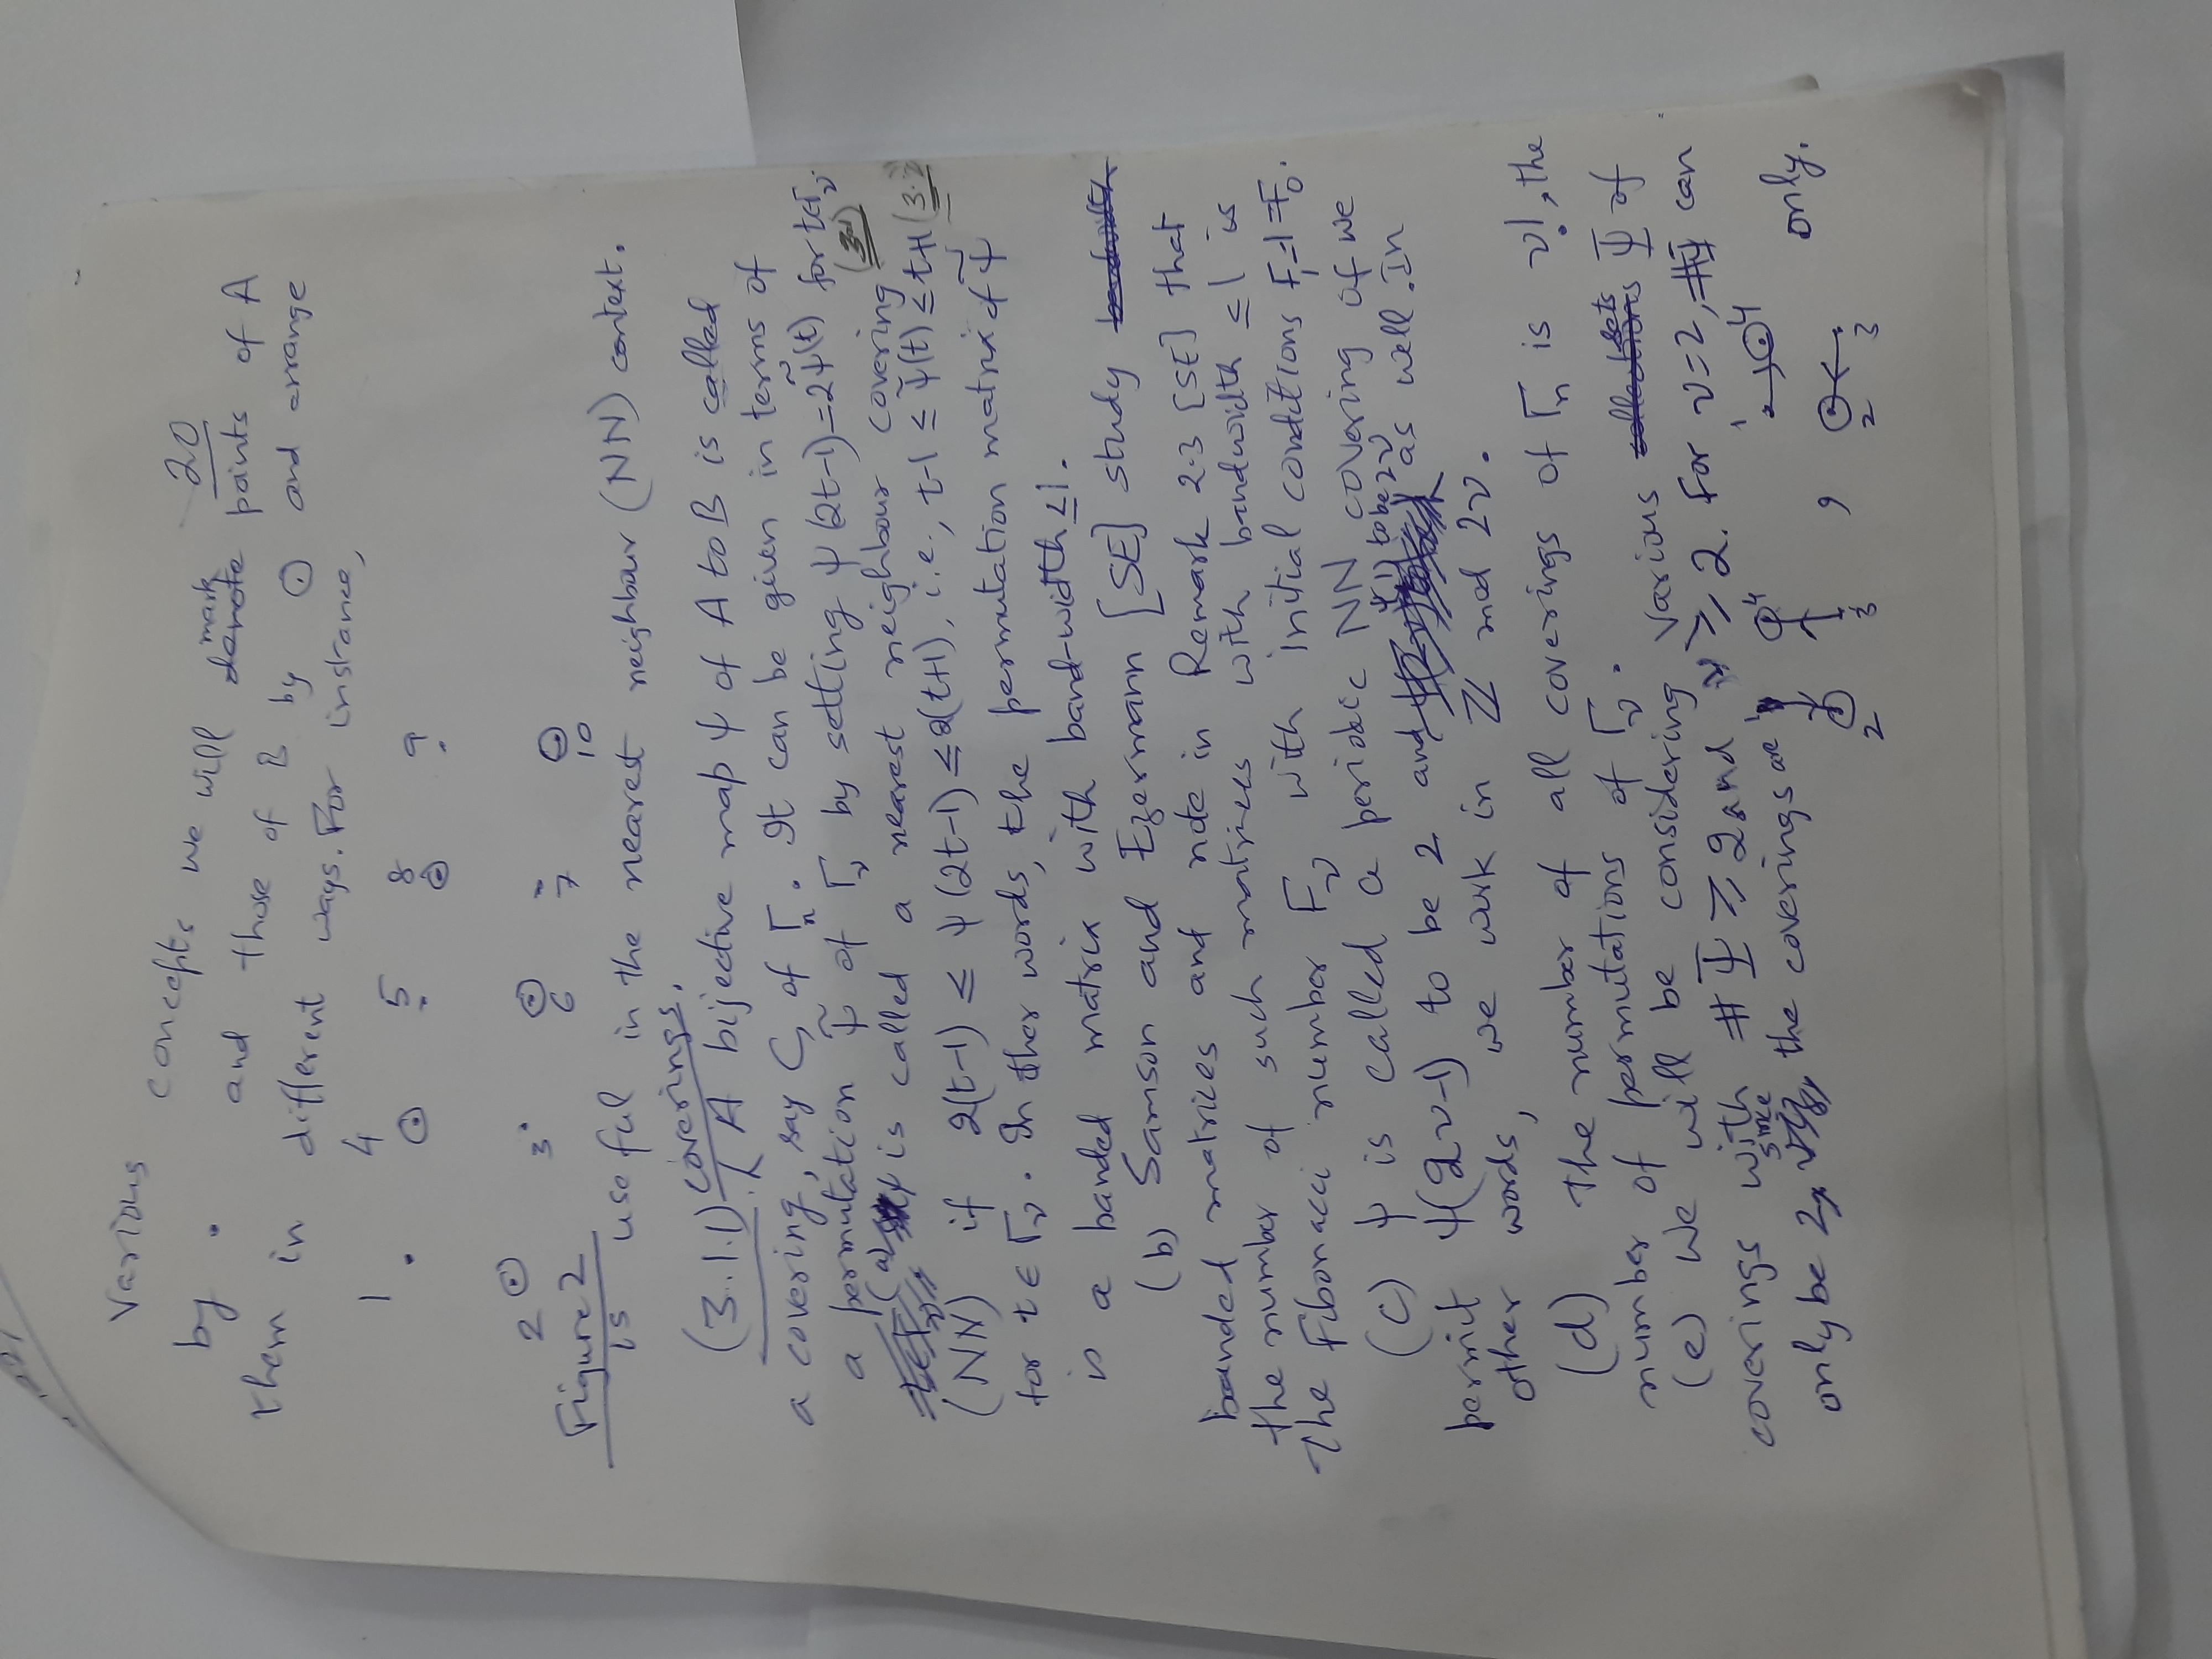 20
Various concepts we will mark points of A
by . and those of B by ⊙ and arrange
them in different ways. For instance,
1 4 5 8 9
2 3 6 7 10
Figure 2
is useful in the nearest neighbour (NN) context.
(3.1.1) coverings. A bijective map ψ of A to B is called
a covering, say C, of Γₙ. It can be given in terms of
a permutation ψ̃ of Γ_ν by setting ψ(2t-1)=2ψ̃(t) for t∈Γ_ν. (3.1)
(a) ψ is called a nearest neighbour covering
(NN) if 2(t-1) ≤ ψ(2t-1) ≤ 2(t+1), i.e., t-1 ≤ ψ̃(t) ≤ t+1 (3.2
for t ∈ Γ_ν. In other words, the permutation matrix of ψ̃
is a banded matrix with band-width ≤1.
(b) Samson and Ezermann [SE] study
banded matrices and note in Remark 2.3 [SE] that
the number of such matrices with bandwidth ≤1 is
the Fibonacci number F_ν with initial conditions F₁=1=F₀.
(c) ψ is called a periodic NN covering of we
permit ψ(2ν-1) to be 2 and ψ(1) to be 2ν as well. In
other words, we work in ℤ mod 2ν.
(d) The number of all coverings of Γₙ is ν!, the
number of permutations of Γ_ν.
(e) We will be considering various sets Ψ of
coverings with #Ψ ≥ 2 and ν ≥ 2. For ν=2, #Ψ can
only be 2, since the coverings are 1 4 , 1 4 only.
2 3 2 3